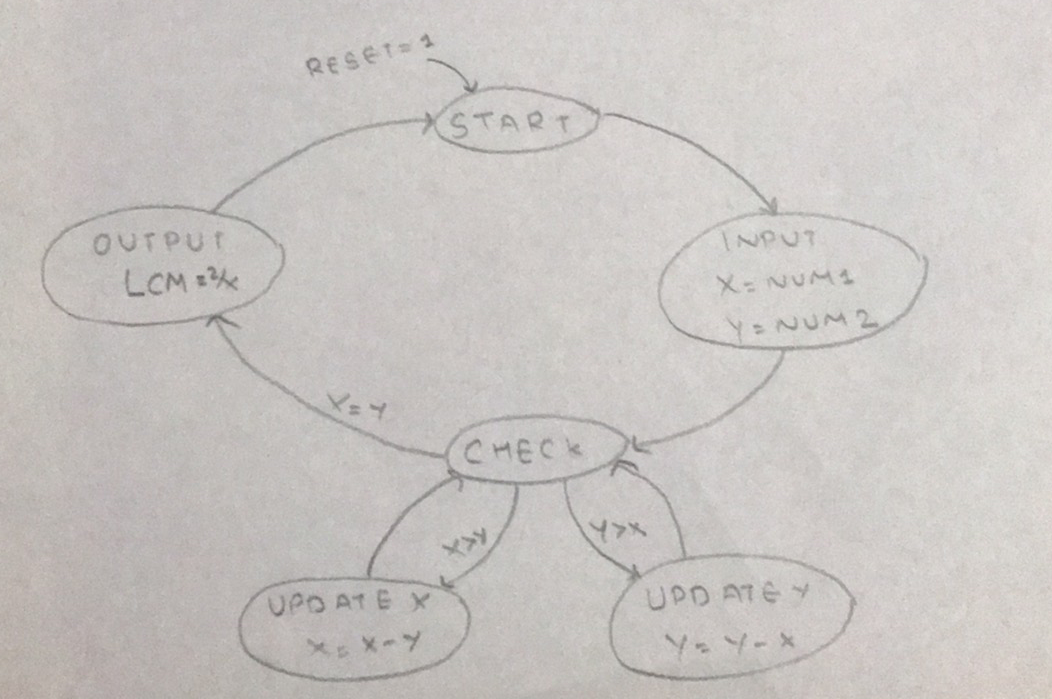 RESET=1
START
INPUT
X=NUM1
Y=NUM2
OUTPUT
LCM=²/x
X=Y
CHECK
X>Y
Y>X
UPDATE X
X=X-Y
UPDATE Y
Y=Y-X